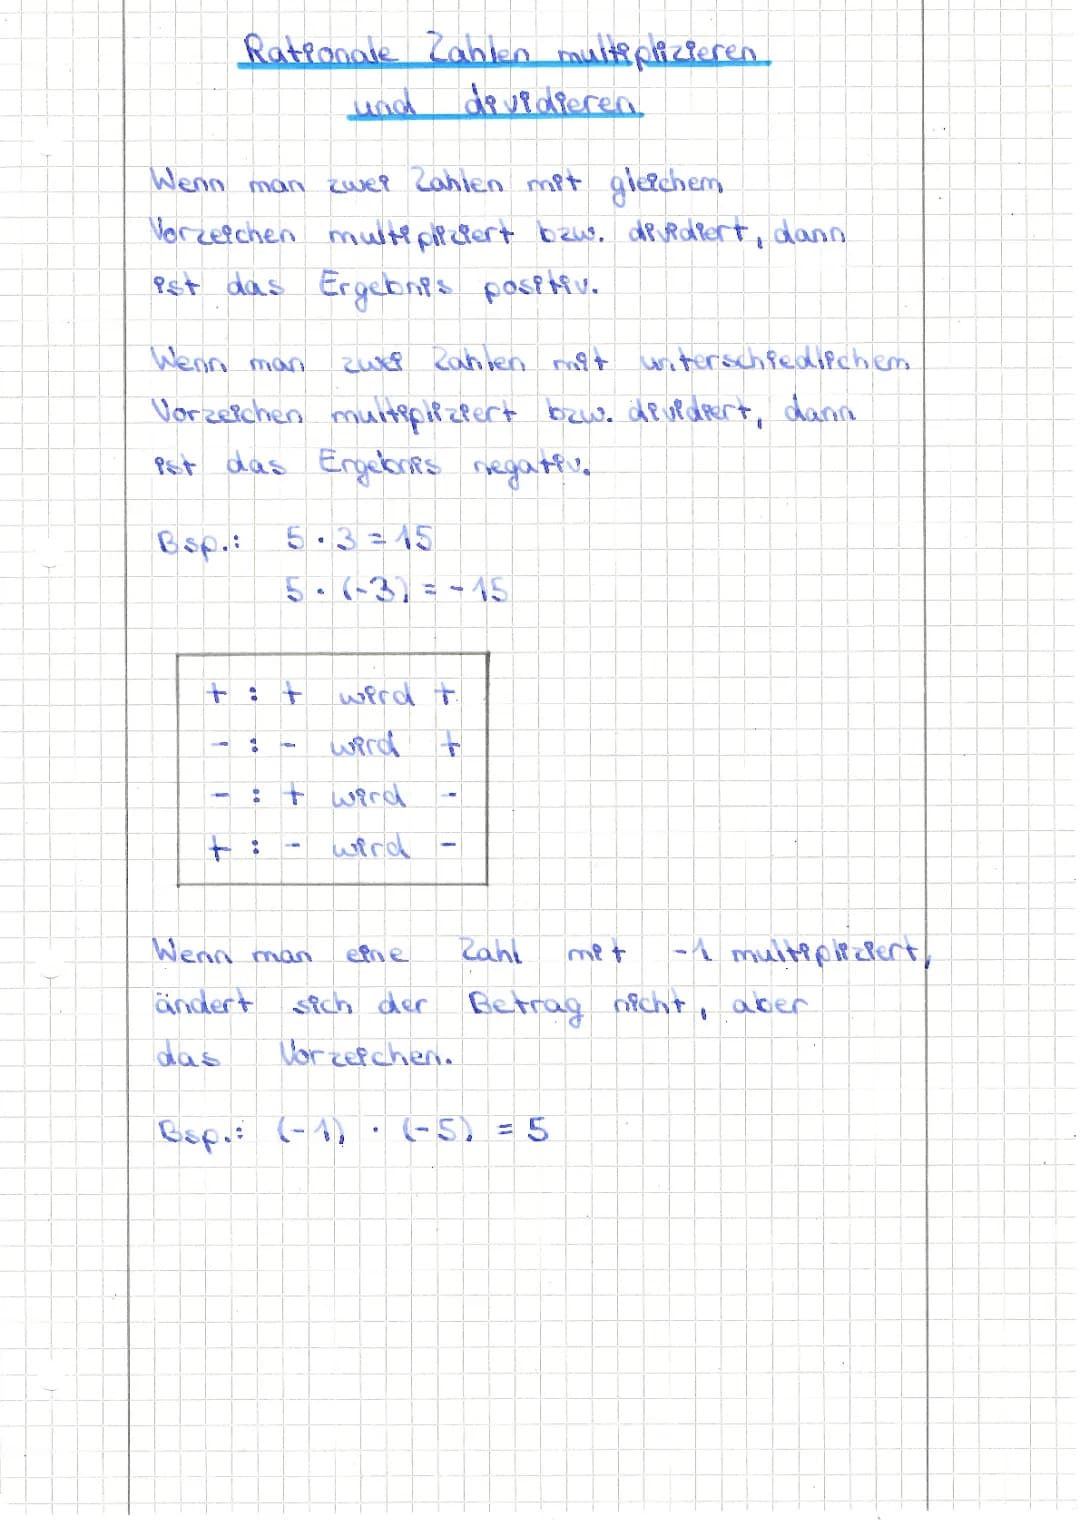 Rationale Zahlen multiplizieren
und dividieren
Wenn man zwei Zahlen mit gleichem
Vorzeichen multipliziert bzw. dividiert, dann
ist das Ergebnis positiv.
Wenn man zwei Zahlen mit unterschiedlichem
Vorzeichen multipliziert bzw. dividiert, dann
ist das Ergebnis negativ.
Bsp.: 5 · 3 = 15
5 · (-3) = -15
+ : + wird +
- : - wird +
- : + wird -
+ : - wird -
Wenn man eine Zahl mit -1 multipliziert,
ändert sich der Betrag nicht, aber
das Vorzeichen.
Bsp.: (-1) · (-5) = 5